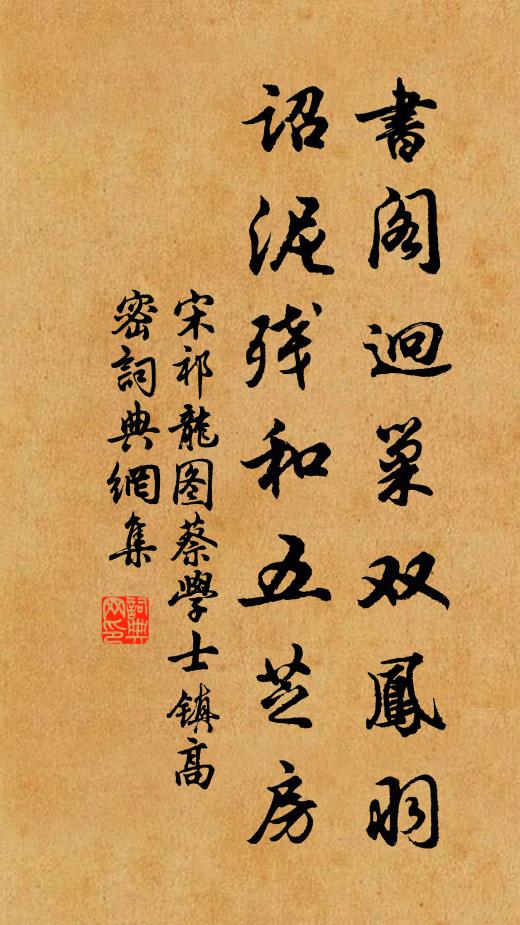 書阁迴巢双鳳羽
诏泥残和五芝房
宋祁龍图蔡學士镇高
密詞典網集
詞典
网印